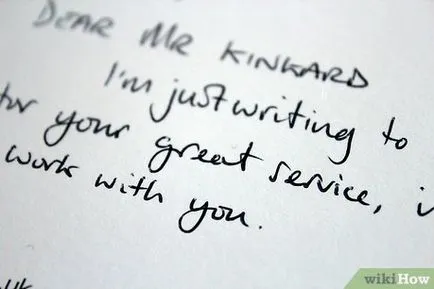 DEAR MR KINKARD
I'm just writing to
for your great service, i
work with you.
wikiHow